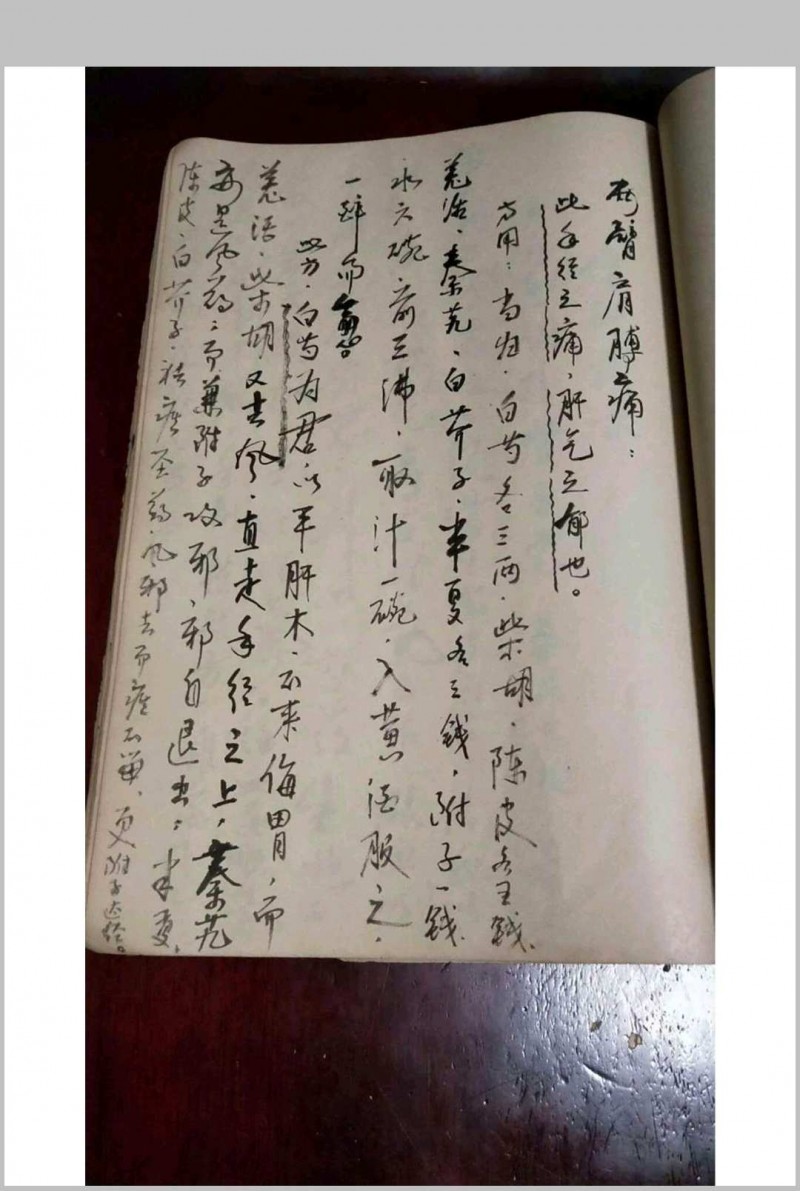 两臂肩膊痛：
此手经之痛，肝气之郁也。
方用：当归、白芍各三两，柴胡、陈皮各五钱、
羌活、秦艽、白芥子、半夏各三钱，附子一钱，
水六碗，煎三沸，取汁一碗，入黄酒服之，
一醉而愈。
此方，白芍为君，以平肝木，不来侮胃，而
羌活，柴胡又去风，直走手经之上，秦艽
亦是风药，而兼附子攻邪，邪自退出，半夏、
陈皮、白芥子，祛痰圣药，风邪去而痰不留，更附子达经。